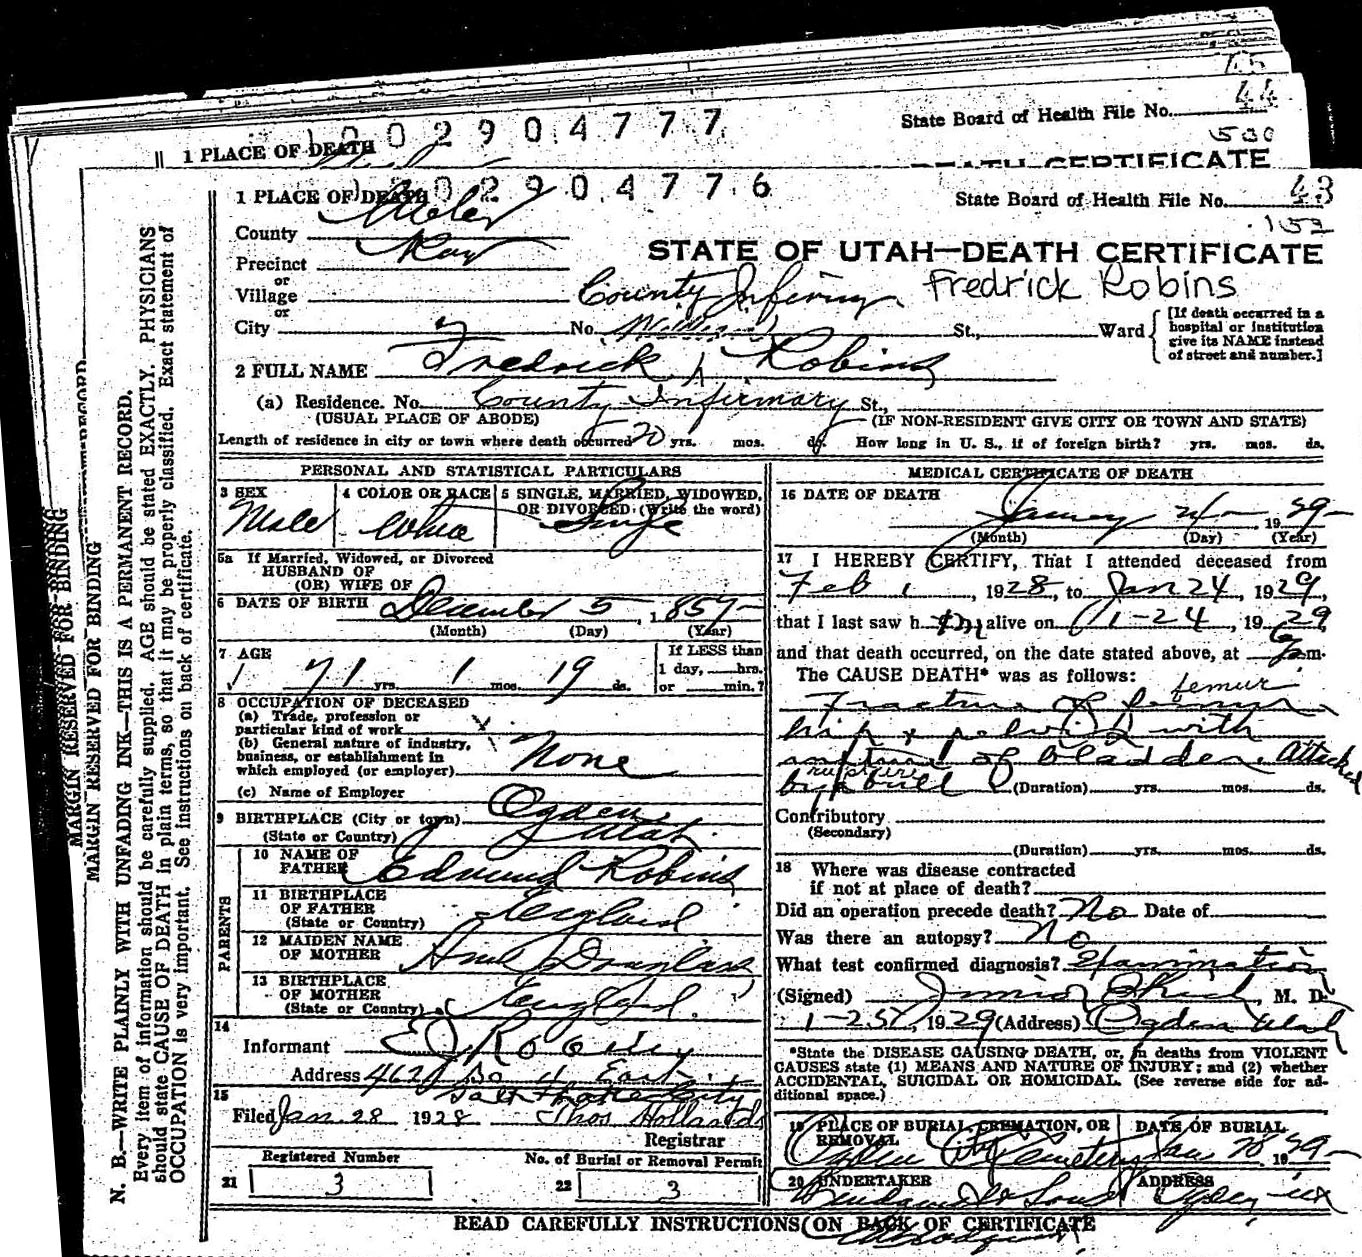 1 PLACE OF DEATH
1002904777
State Board of Health File No. 44
530
DEATH CERTIFICATE
1 PLACE OF DEATH
1002904776
State Board of Health File No. 43
152
County Weber
STATE OF UTAH—DEATH CERTIFICATE
Precinct Roy
or
Village County Infirmary Fredrick Robins
or
City No. St., Ward
[If death occurred in a
hospital or institution
give its NAME instead
of street and number.]
2 FULL NAME Fredrick Robins
(a) Residence. No. County Infirmary St.,
(USUAL PLACE OF ABODE) (IF NON-RESIDENT GIVE CITY OR TOWN AND STATE)
Length of residence in city or town where death occurred 20 yrs. mos. ds. How long in U. S., if of foreign birth? yrs. mos. ds.
PERSONAL AND STATISTICAL PARTICULARS
3 SEX 4 COLOR OR RACE 5 SINGLE, MARRIED, WIDOWED,
OR DIVORCED (Write the word)
Male White Single
5a If Married, Widowed, or Divorced
HUSBAND OF
(OR) WIFE OF
6 DATE OF BIRTH December 5, 1857
(Month) (Day) (Year)
7 AGE If LESS than
71 yrs. 1 mos. 19 ds. 1 day, hrs.
or min.?
8 OCCUPATION OF DECEASED
(a) Trade, profession or
particular kind of work
(b) General nature of industry,
business, or establishment in
which employed (or employer) None
(c) Name of Employer
9 BIRTHPLACE (City or town) Ogden
(State or Country) Utah
PARENTS
10 NAME OF
FATHER Edmund Robins
11 BIRTHPLACE
OF FATHER
(State or Country) England
12 MAIDEN NAME
OF MOTHER Douglass
13 BIRTHPLACE
OF MOTHER
(State or Country) England
14
Informant
Address 462 So 4 East
Salt Lake City
15
Filed Jan. 28 1928 Thos Hollands
Registrar
Registered Number No. of Burial or Removal Permit
21 3 22 3
MEDICAL CERTIFICATE OF DEATH
16 DATE OF DEATH
January 24 1929
(Month) (Day) (Year)
17 I HEREBY CERTIFY, That I attended deceased from
Feb 1, 1928, to Jan 24, 1929,
that I last saw him alive on 1-24, 1929
and that death occurred, on the date stated above, at m.
The CAUSE DEATH* was as follows:
femur
Fracture of femur
hip & pelvis with
rupture of bladder. Attacked
rupture
by bull (Duration) yrs. mos. ds.
Contributory
(Secondary)
(Duration) yrs. mos. ds.
18 Where was disease contracted
if not at place of death?
Did an operation precede death? No Date of
Was there an autopsy? No
What test confirmed diagnosis? Examination
(Signed) , M. D.
1-25, 1929 (Address) Ogden Utah
*State the DISEASE CAUSING DEATH, or, in deaths from VIOLENT
CAUSES state (1) MEANS AND NATURE OF INJURY; and (2) whether
ACCIDENTAL, SUICIDAL OR HOMICIDAL. (See reverse side for ad-
ditional space.)
19 PLACE OF BURIAL, CREMATION, OR
REMOVAL DATE OF BURIAL
Ogden City Cemetery Jan 28 1929
20 UNDERTAKER ADDRESS
Sons Ogden
READ CAREFULLY INSTRUCTIONS ON BACK OF CERTIFICATE
MARGIN RESERVED FOR BINDING
MARGIN RESERVED FOR BINDING
N. B.—WRITE PLAINLY WITH UNFADING INK—THIS IS A PERMANENT RECORD.
Every item of information should be carefully supplied. AGE should be stated EXACTLY. PHYSICIANS
should state CAUSE OF DEATH in plain terms, so that it may be properly classified. Exact statement of
OCCUPATION is very important. See instructions on back of certificate.